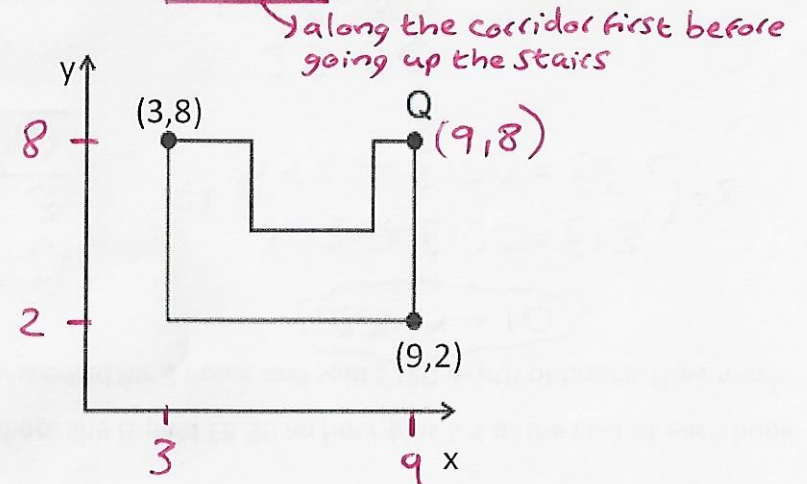 along the corridor first before
going up the stairs
y
Q
(3,8)
8
(9,8)
2
(9,2)
3
9
x